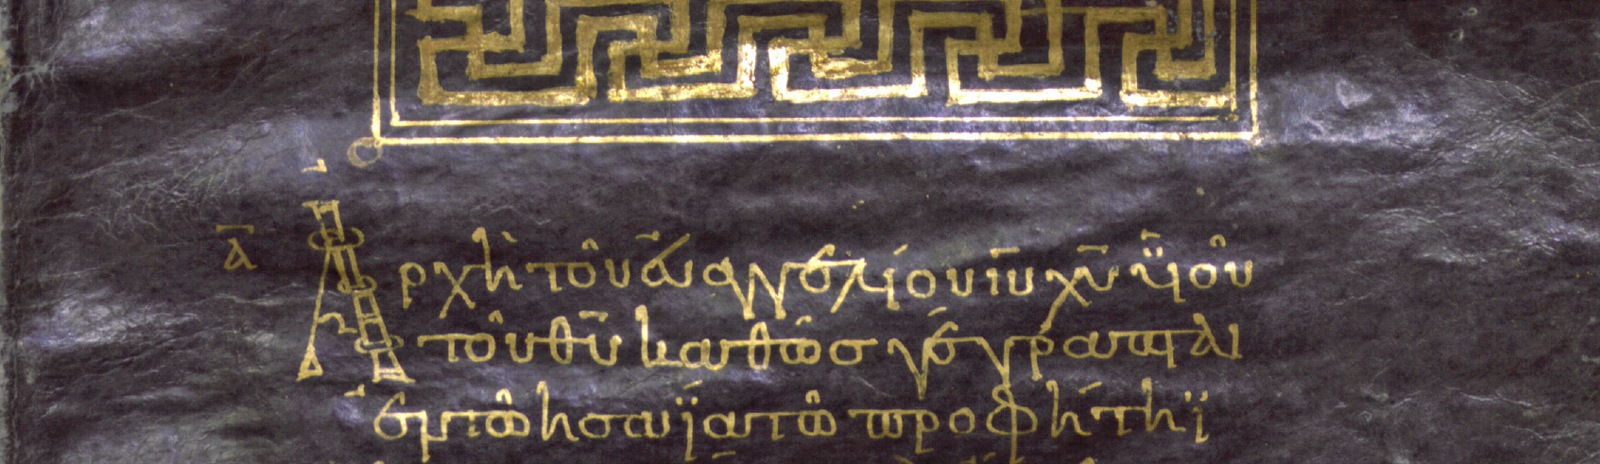 α̅ Ἀρχὴ τοῦ εὐαγγελίου ι̅υ̅ χ̅υ̅ ὑιοῦ
τοῦ θ̅υ̅ καθὼς γέγραπται
ἐν τῶ ησαΐα τῶ προφήτηϊ